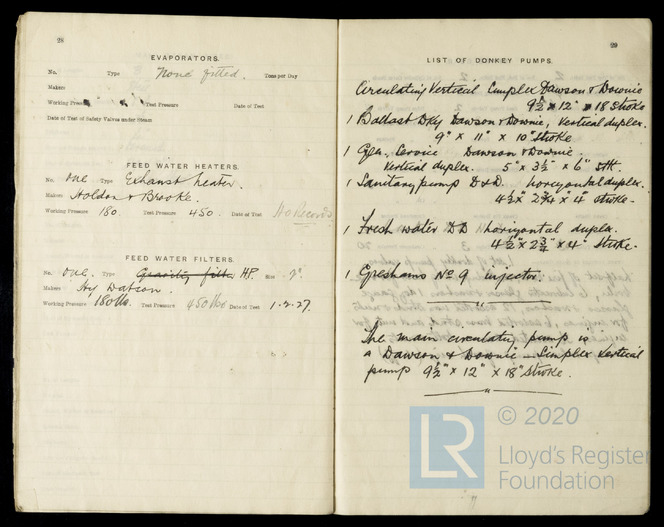 28
EVAPORATORS.
No. Type None fitted. Tons per Day
Maker
Working Pressure Test Pressure Date of Test
Date of Test of Safety Valves under Steam
FEED WATER HEATERS.
No. One Type Exhaust heater.
Maker Holden & Brooke.
Working Pressure 180. Test Pressure 450. Date of Test No Records
FEED WATER FILTERS.
No. One. Type Gravity filter HP. Size 7".
Maker Hy Watson.
Working Pressure 180 lbs. Test Pressure 450 lbs Date of Test 1.2.27.
29
LIST OF DONKEY PUMPS.
Circulating Vertical Simplex Dawson & Downie
9½ × 12" × 18 Stroke
1 Ballast Dky Dawson & Downie, Vertical duplex.
9" × 11" × 10" Stroke
1 Gen. Service Dawson & Downie.
Vertical duplex. 5" × 3½" × 6" Stk.
1 Sanitary pump D & D. horizontal duplex.
4½" × 2¾" × 4" stroke.
1 Fresh water DD horizontal duplex.
4½" × 2¾" × 4" stroke.
1 Greshams No 9 injector.
The main circulating pump is
a Dawson & Downie Simplex Vertical
pump 9½" × 12" × 18" Stroke.
© 2020
LR
Lloyd's Register
Foundation